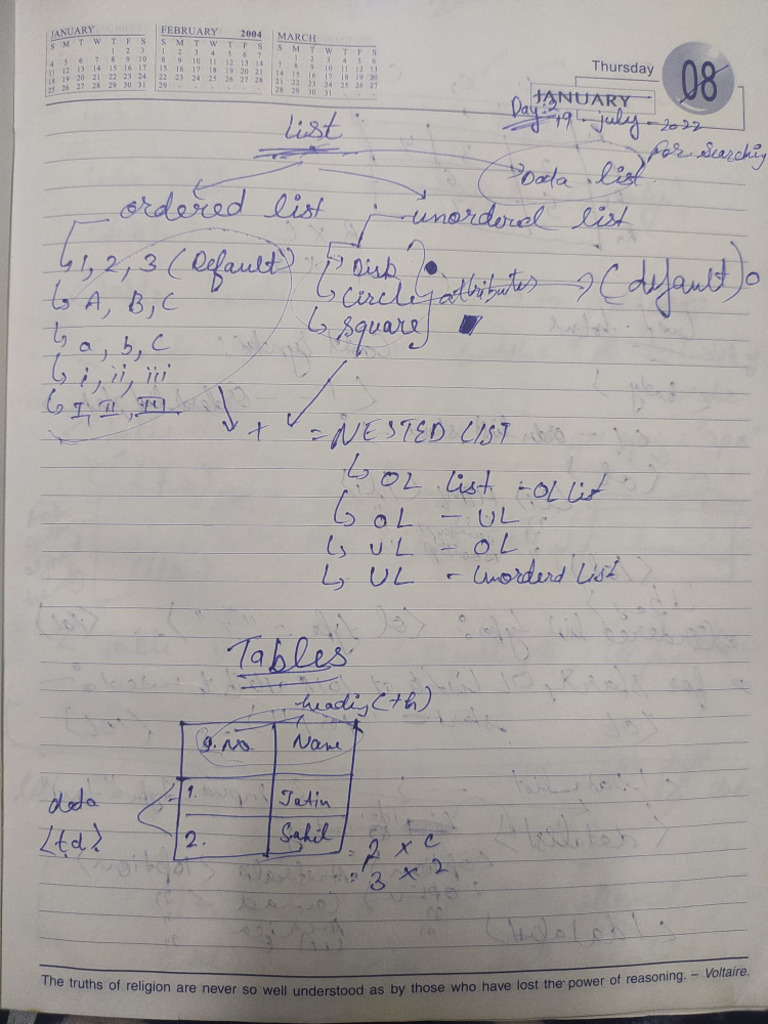 JANUARY
S M T W T F S
1 2 3
4 5 6 7 8 9 10
11 12 13 14 15 16 17
18 19 20 21 22 23 24
25 26 27 28 29 30 31
FEBRUARY 2004
S M T W T F S
1 2 3 4 5 6 7
8 9 10 11 12 13 14
15 16 17 18 19 20 21
22 23 24 25 26 27 28
29
MARCH
S M T W T F S
1 2 3 4 5 6
7 8 9 10 11 12 13
14 15 16 17 18 19 20
21 22 23 24 25 26 27
28 29 30 31
Thursday
08
JANUARY
Day:3
19 - july - 2022
List
for searching
Data list
ordered list
unordered list
1, 2, 3 (Default)
A, B, C
a, b, c
i, ii, iii
I, II, III
Disk
Circle
Square
attributes
(default)
+ = NESTED LIST
OL list - OL list
OL - UL
UL - OL
UL - Unorderd List
Tables
heading (th)
S.No. Name
1. Jatin
2. Sahil
data
<td>
= 2 x C
= 3 x 2
The truths of religion are never so well understood as by those who have lost the power of reasoning. – Voltaire.